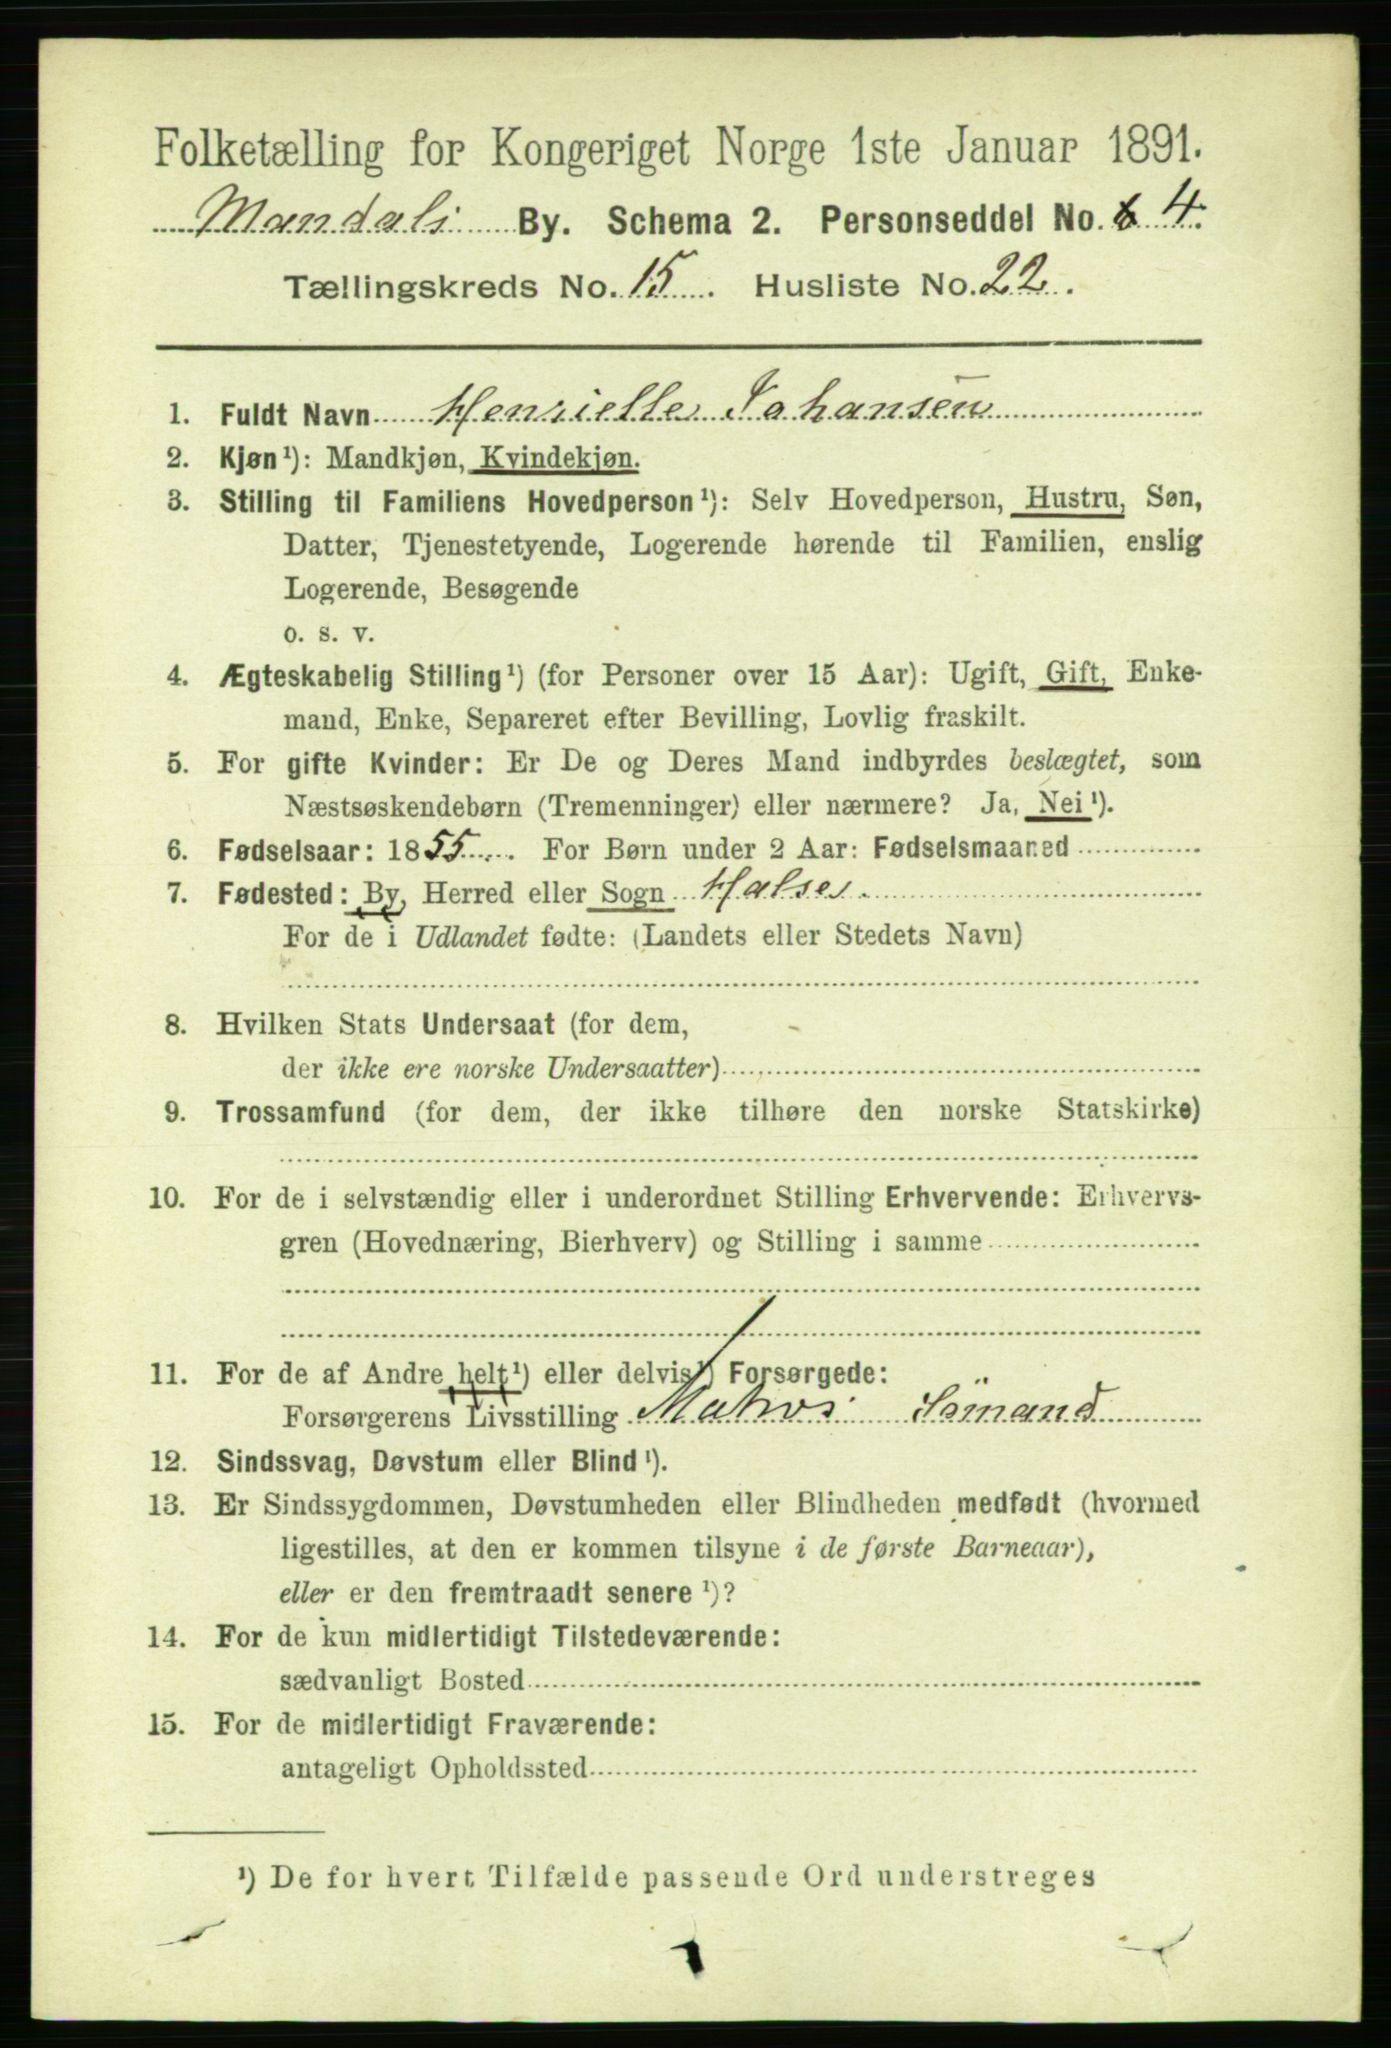 Folketælling for Kongeriget Norge 1ste Januar 1891.
Mandals By. Schema 2. Personseddel No. 4.
Tællingskreds No. 15. Husliste No. 22.
1. Fuldt Navn Henrielle Johansen
2. Kjøn¹): Mandkjøn, Kvindekjøn.
3. Stilling til Familiens Hovedperson¹): Selv Hovedperson, Hustru, Søn,
Datter, Tjenestetyende, Logerende hørende til Familien, enslig
Logerende, Besøgende
o. s. v.
4. Ægteskabelig Stilling¹) (for Personer over 15 Aar): Ugift, Gift, Enke-
mand, Enke, Separeret efter Bevilling, Lovlig fraskilt.
5. For gifte Kvinder: Er De og Deres Mand indbyrdes beslægtet, som
Næstsøskendebørn (Tremenninger) eller nærmere? Ja, Nei¹).
6. Fødselsaar: 1855. For Børn under 2 Aar: Fødselsmaaned
7. Fødested: By, Herred eller Sogn Halse.
For de i Udlandet fødte: (Landets eller Stedets Navn)
8. Hvilken Stats Undersaat (for dem,
der ikke ere norske Undersaatter)
9. Trossamfund (for dem, der ikke tilhøre den norske Statskirke)
10. For de i selvstændig eller i underordnet Stilling Erhvervende: Erhvervs-
gren (Hovednæring, Bierhverv) og Stilling i samme
11. For de af Andre helt¹) eller delvis¹) Forsørgede:
Forsørgerens Livsstilling Matros Sömand
12. Sindssvag, Døvstum eller Blind¹).
13. Er Sindssygdommen, Døvstumheden eller Blindheden medfødt (hvormed
ligestilles, at den er kommen tilsyne i de første Barneaar),
eller er den fremtraadt senere¹)?
14. For de kun midlertidigt Tilstedeværende:
sædvanligt Bosted
15. For de midlertidigt Fraværende:
antageligt Opholdssted
¹) De for hvert Tilfælde passende Ord understreges